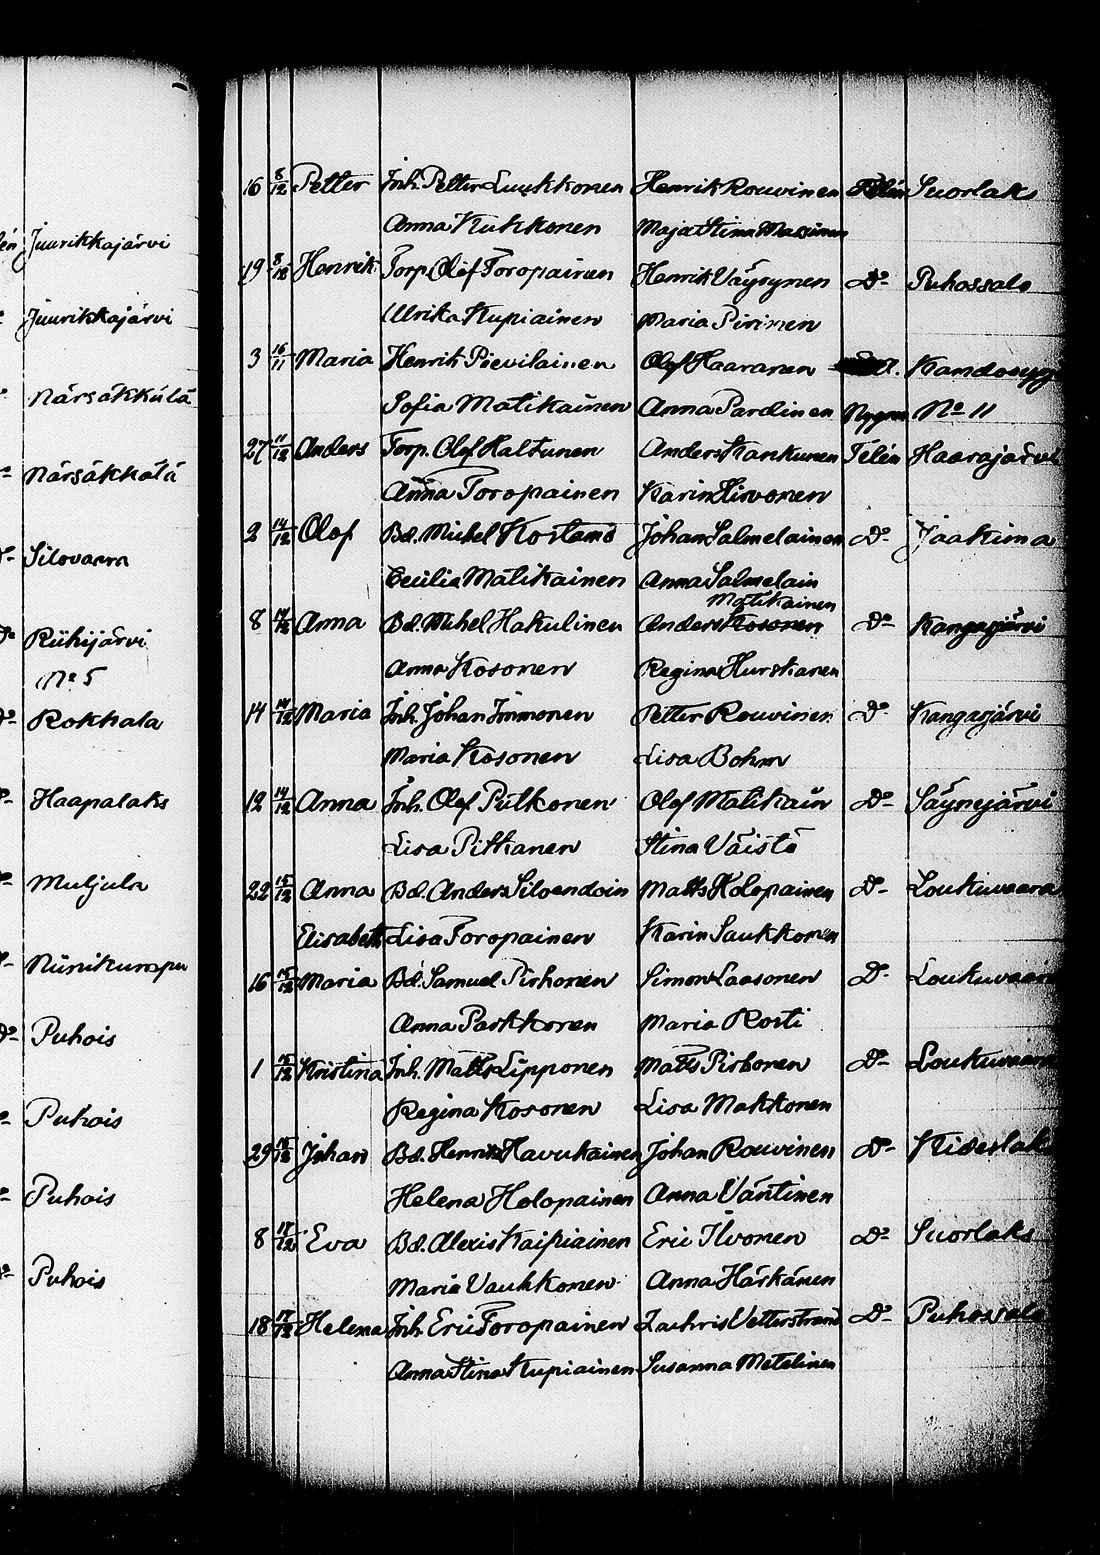 Juurikkajärvi
Juurikkajärvi
Närsäkkälä
Närsäkkälä
Silovaara
Riihijärvi
No 5
Rokkala
Haapalaks
Muljula
Niinikumpu
Puhois
Puhois
Puhois
Puhois
16 8/12 Petter Inh. Petter Luukkonen Henrik Rouvinen Suorlaks
Anna Kukkonen Maja Stina
19 8/12 Henrik Torp. Olof Toropainen Henrik Väyrynen Do Puhossalo
Ulrika Kupiainen Maria Pirinen
3 16/11 Maria Henrik Pievilainen Olof Haaranen
Sofia Matikainen Anna Pardinen No 11
27 11/12 Anders Torp. Olof Haltunen Anders Kankunen Telén Haarajärvi
Anna Toropainen Karin Hirvonen
2 14/12 Olof Bd. Michel Kostamo Johan Salmelainen Do Jaakima
Cecilia Matikainen Anna Salmelain
Matikainen
8 14/12 Anna Bd. Mihel Hakulinen Anders Kosonen Do Kangasjärvi
Anna Kosonen Regina Hurskanen
14 14/12 Maria Inh. Johan Immonen Petter Rouvinen Do Kangasjärvi
Maria Kosonen Lisa Bohm
12 14/12 Anna Inh. Olof Pulkonen Olof Matikain Do Säynejärvi
Lisa Pitkanen Stina Väistö
22 15/12 Anna Bd. Anders Silvendoin Matts Holopainen Do Loukuvaara
Elisabeth Lisa Toropainen Karin Saukkonen
16 15/12 Maria Bd. Samuel Pirhonen Simon Laasonen Do Loukuvaara
Anna Parkkonen Maria Rosti
1 15/12 Kristina Inh. Matts Lipponen Matts Pirhonen Do Loukuvaara
Regina Kosonen Lisa Makkonen
29 15/12 Johan Bd. Henrik Havukainen Johan Rouvinen Do Kideslaks
Helena Holopainen Anna Väntinen
8 17/12 Eva Bd. Alexis Kaipiainen Eric Ilvonen Do Suorlaks
Maria Vaukkonen Anna Härkänen
18 17/12 Helena Inh. Eric Toropainen Zachris Vetterstrand Do Puhossalo
Anna Stina Kupiainen Susanna Metelinen